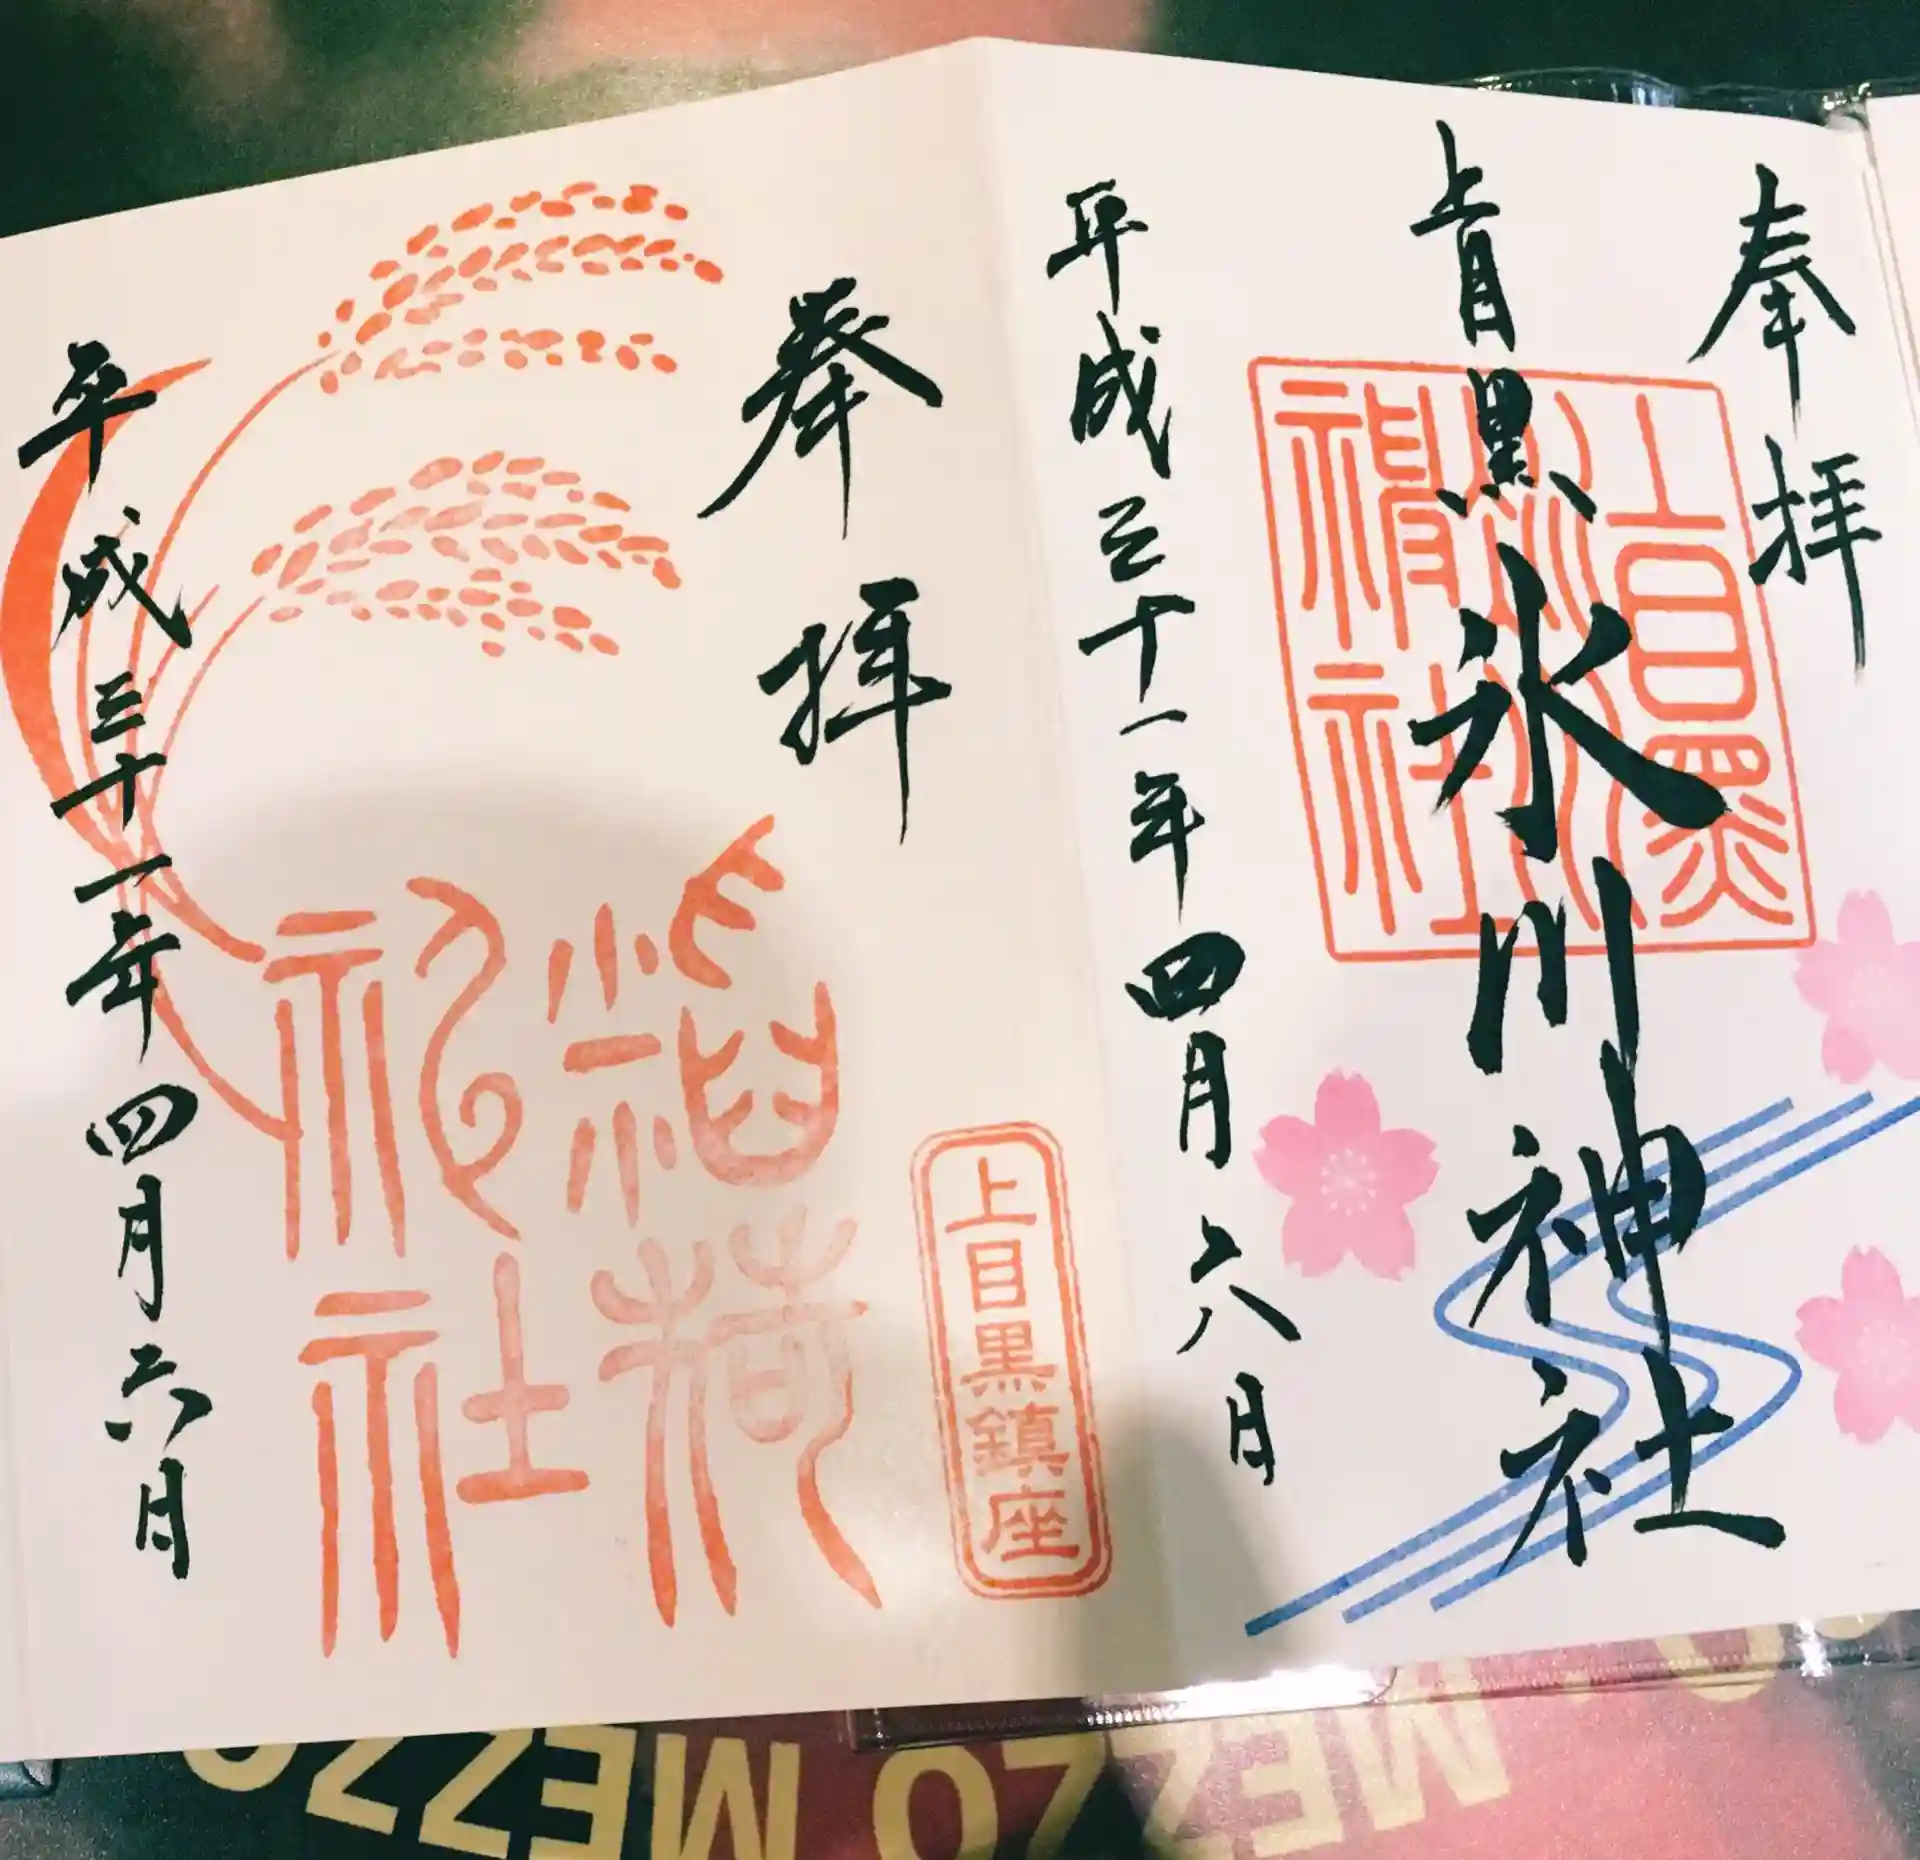 奉拝
上目黒氷川神社
上目黒
氷川
神社
平成三十一年四月六日
奉拝
上目黒鎮座
稲荷
神社
平成三十一年四月六日
MEZZO MEZZO MEZZO